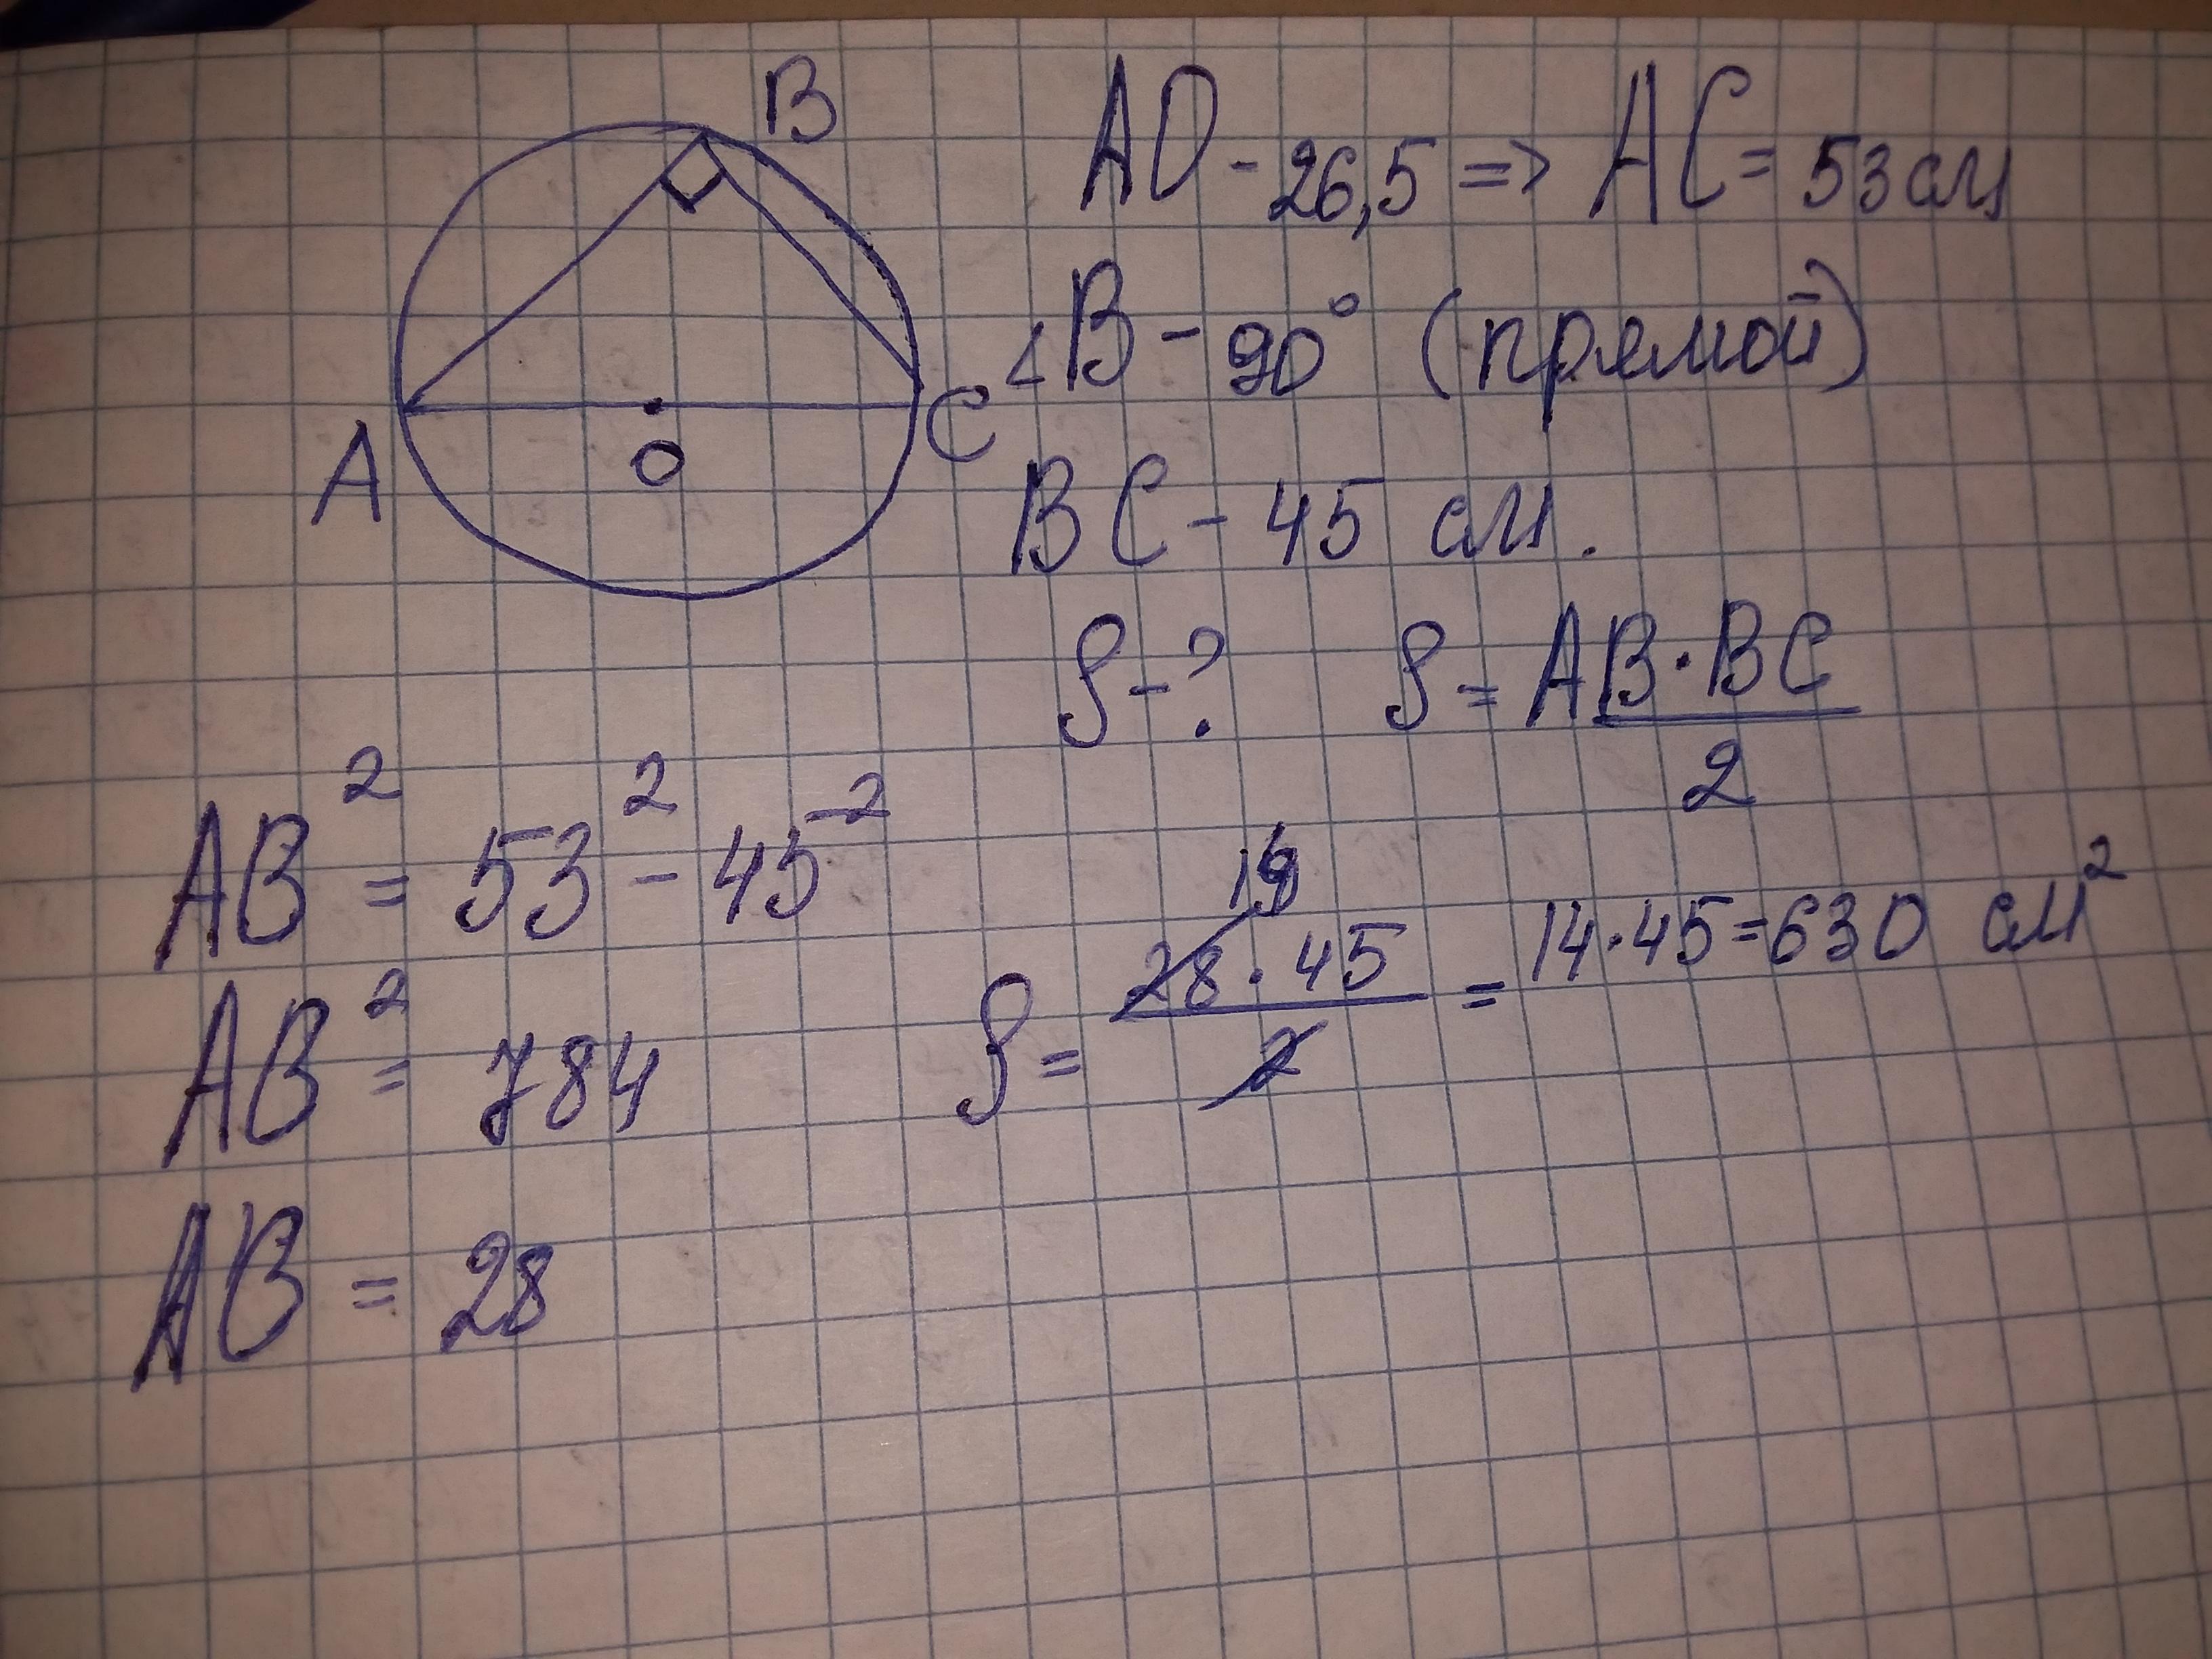 B
A
O
C
AO - 26,5 => AC = 53 см
∠B - 90° (прямой)
BC - 45 см.
S - ? S = AB · BC / 2
AB² = 53² - 45²
AB² = 784
AB = 28
S = 28 · 45 / 2 = 14 · 45 = 630 см²